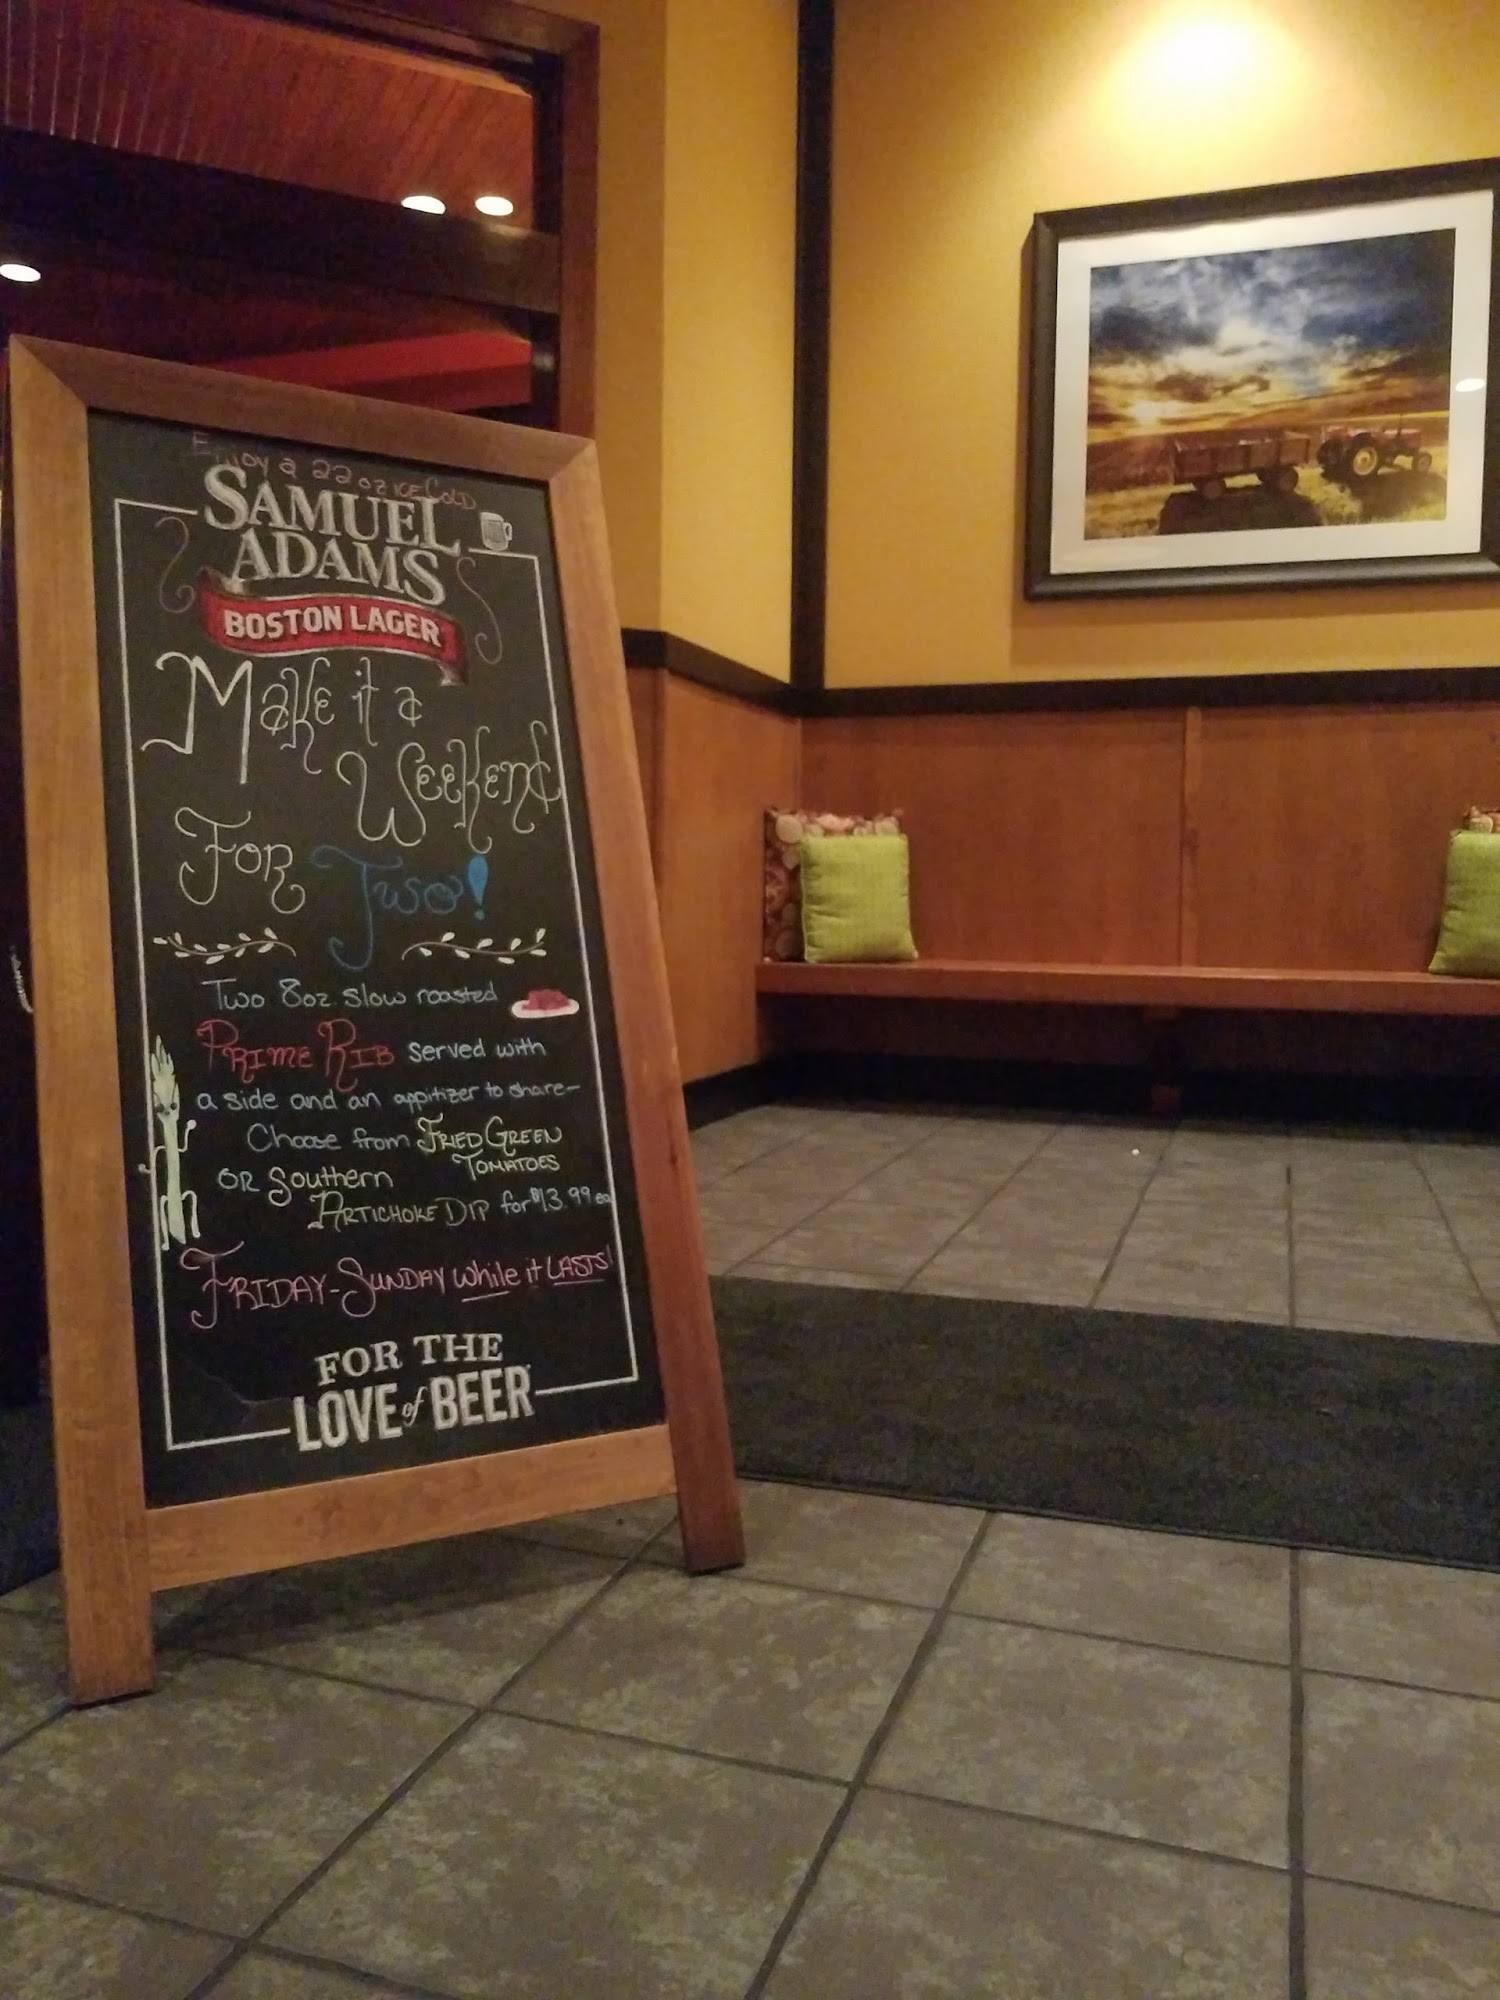 Enjoy a 22oz ICE COLD
SAMUEL
ADAMS
BOSTON LAGER
Make it a
Weekend
For Two!
Two 8oz slow roasted
PRIME RIB served with
a side and an appitizer to share-
Choose from FRIED GREEN
TOMATOES
OR Southern
ARTICHOKE DIP for $13.99 ea
FRIDAY-SUNDAY while it LASTS!
FOR THE
LOVE of BEER